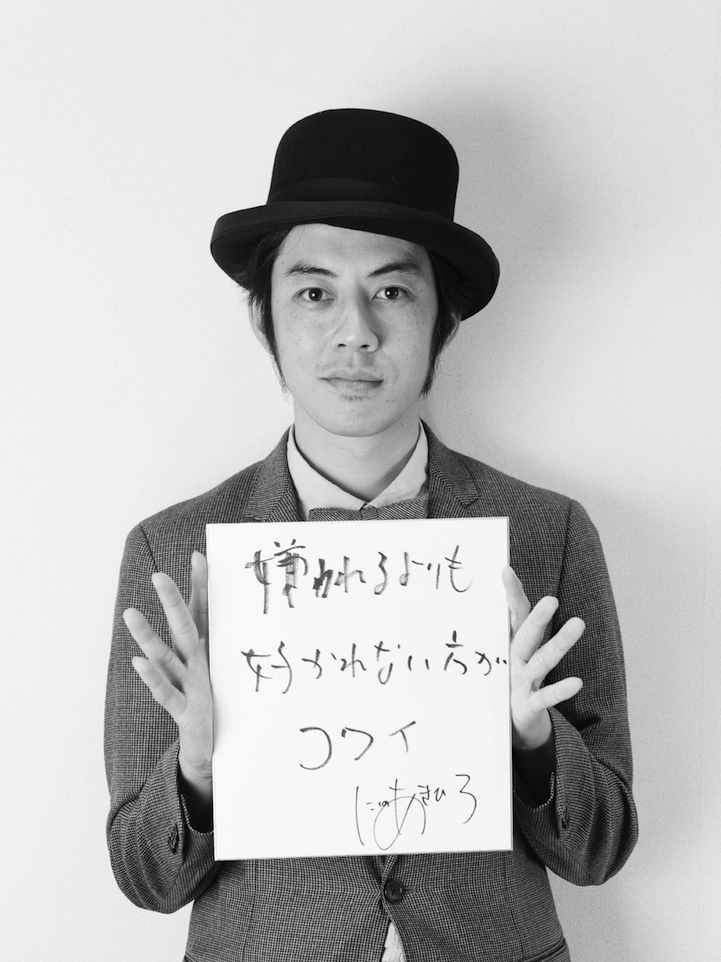 嫌われるよりも
好かれない方が
コワイ
にしのあきひろ